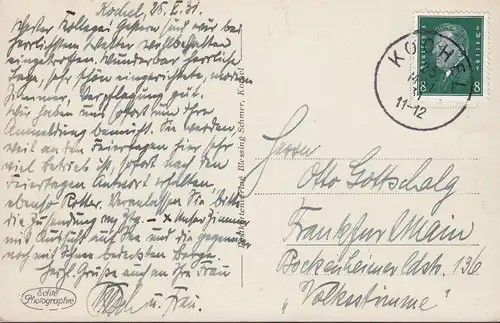 Kochel, 25. V. 31.
Werter Kollege! Gestern sind wir bei
herrlichstem Wetter wohlbehalten
eingetroffen. Wunderbar herrliche
Lage, sehr schön eingerichtete, moderne
Zimmer, Verpflegung gut.
Wir haben uns sofort um Ihre
Anmeldung bemüht. Sie werden,
weil an den Feiertagen hier sehr
viel Betrieb ist, sofort nach den
Feiertagen Antwort erhalten
ebenso Rotter. Veranlassen Sie bitte
die Zusendung der Ztg. – Unser Zimmer
mit Aussicht auf See und die gegenüber
noch mit Schnee bedeckten Berge.
Herzl. Grüße auch an Ihre Frau
u. Frau.
Echte Photographie
Postkartenverlag Blessing-Schmer, Kochel
KOCHEL
11-12
8 8
Herrn
Otto Gottschalg
Frankfurt Main
Bockenheimer Ldstr. 136
"Volksstimme"